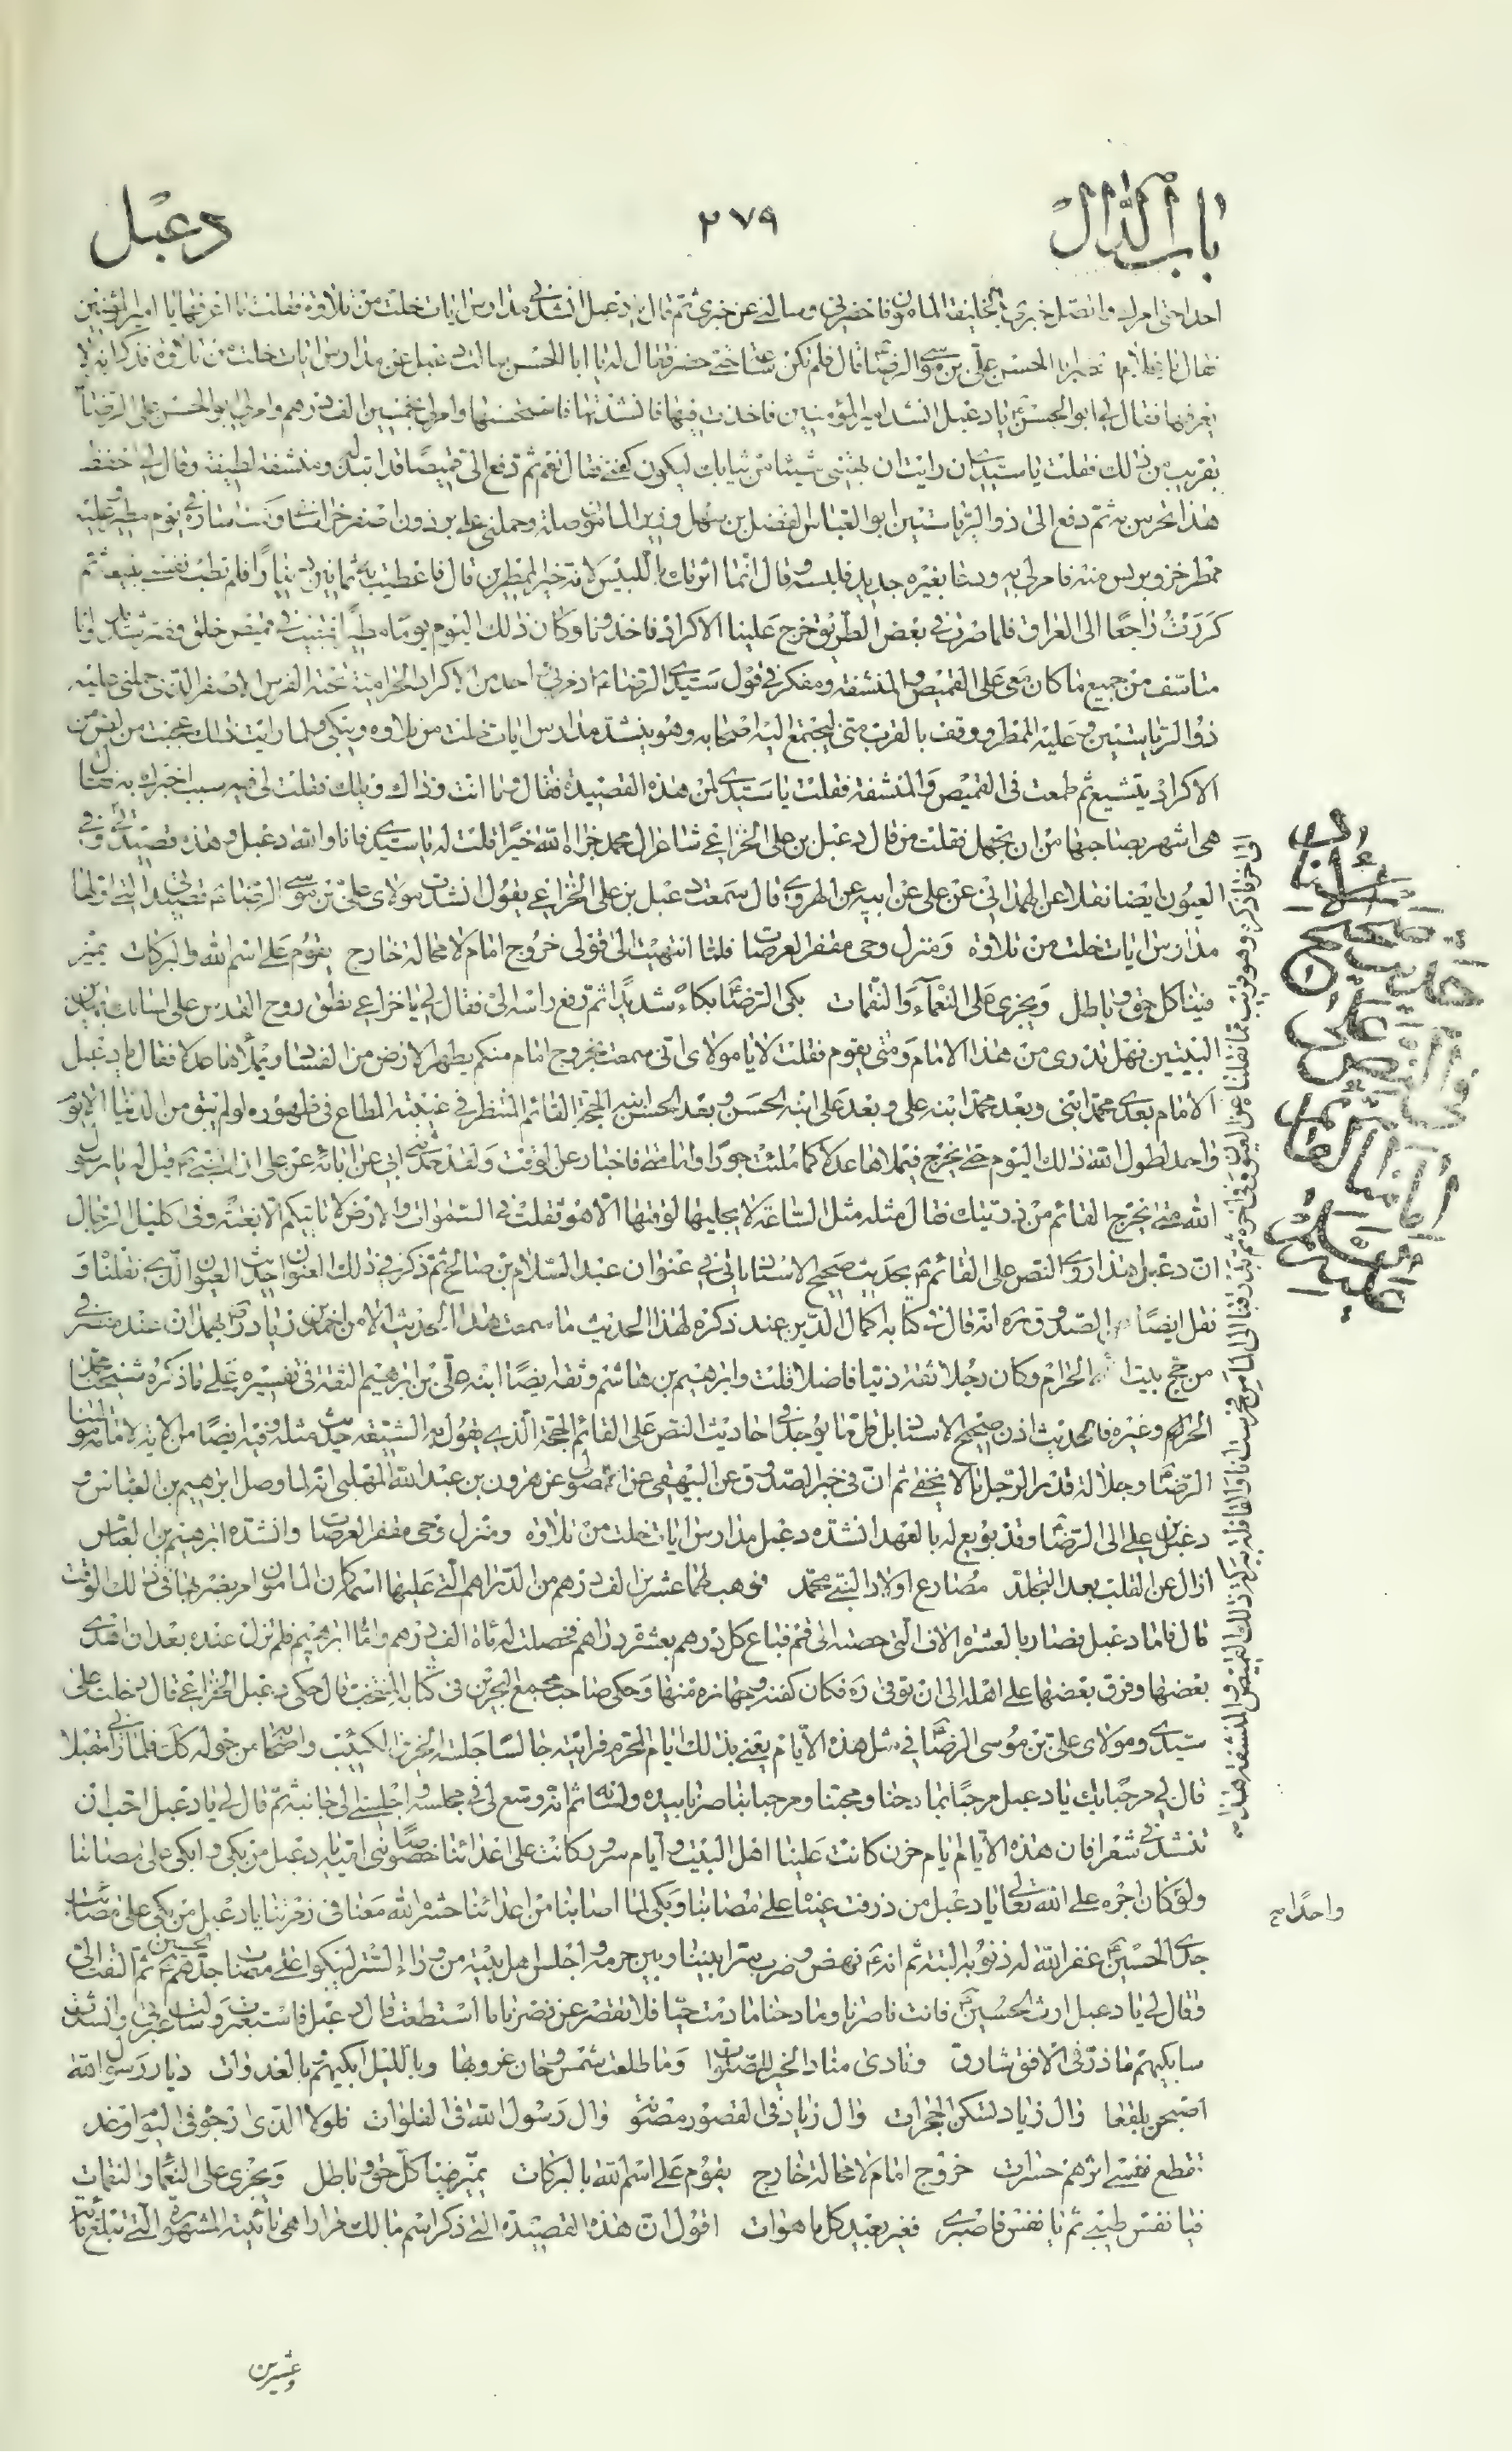 باب الدال
٢٧٩
دعبل
احدا حتى امر له واتصل خبرى بالخليفة المامون فاحضرنى وسالنى عن خبرى ثم قال يا دعبل انشدنى مدارس ايات خلت من تلاوة فقلت ما اعرفها يا امير المؤمنين
فقال يا غلام احضر ابا الحسن على بن موسى الرضا قال فلم تكن ساعة حتى حضر فقال له يا ابا الحسن سالت دعبل عن مدارس ايات خلت من تلاوة فذكر انه لا
يعرفها فقال لى ابو الحسن ع يا دعبل انشد امير المؤمنين فاخذت فيها فانشدتها فاستحسنها وامر لى بخمسين الف درهم وامر لى ابو الحسن على الرضا ع
بقريب من ذلك فقلت يا سيدى ان رايت ان تهبنى شيئا من ثيابك ليكون كفنى فقال نعم ثم دفع الى قميصا قد ابتذله ومنشفة لطيفة وقال لى احفظ
هذا تحرس به ثم دفع الى ذو الرياستين ابو العباس الفضل بن سهل وزير المامون صلة وحملنى على برذون اصفر خراسانى وكنت اسايره فى يوم مطير وعليه
ممطر خز وبرنس منه فامر لى به ودعا بغيره جديد فلبسه وقال انما اثرتك باللبيس لانه خير الممطرين قال فاعطيت به ثمانين دينارا فلم تطب نفسى ببيعه ثم
كررت راجعا الى العراق فلما صرت فى بعض الطريق خرج علينا الاكراد فاخذونا وكان ذلك اليوم يوما مطيرا فبقيت فى قميص خلق وضر شديد وانا
متاسف من جميع ما كان معى على القميص والمنشفة ومفكر فى قول سيدى الرضا ع اذ مر بى احد من الاكراد الحرامية تحته الفرس الاصفر الذى حملنى عليه
ذو الرياستين وعليه الممطر ووقف بالقرب منى ليجتمع اليه اصحابه وهو ينشد مدارس ايات خلت من تلاوة ويبكى فلما رايت ذلك عجبت من لص من
الاكراد يتشيع ثم طمعت فى القميص والمنشفة فقلت يا سيدى لمن هذه القصيدة فقال ما انت وذاك ويلك فقلت لى فيه سبب اخبرك به فقال
هى اشهر بصاحبها من ان تجهل فقلت من قال دعبل بن على الخزاعى شاعر ال محمد جزاه الله خيرا قلت له يا سيدى فانا والله دعبل وهذه قصيدتى وفى
العيون ايضا نقلا عن الهمدانى عن على عن ابيه عن الهروى قال سمعت دعبل بن على الخزاعى يقول انشدت مولاى على بن موسى الرضا ع قصيدتى التى اولها
مدارس ايات خلت من تلاوة ومنزل وحى مقفر العرصات فلما انتهيت الى قولى خروج امام لا محالة خارج يقوم على اسم الله والبركات يميز
فينا كل حق وباطل ويجزى على النعماء والنقمات بكى الرضا ع بكاء شديدا ثم رفع راسه الى فقال لى يا خزاعى نطق روح القدس على لسانك بهذين
البيتين فهل تدرى من هذا الامام ومتى يقوم فقلت لا يا مولاى انى سمعت بخروج امام منكم يطهر الارض من الفساد ويملأها عدلا فقال يا دعبل
الامام بعدى محمد ابنى وبعد محمد ابنه على وبعد على ابنه الحسن وبعد الحسن ابنه الحجة القائم المنتظر فى غيبته المطاع فى ظهوره لو لم يبق من الدنيا الا يوم
واحد لطول الله ذلك اليوم حتى يخرج فيملاها عدلا كما ملئت جورا واما متى فاخبار عن الوقت ولقد حدثنى ابى عن ابائه عن على ان النبى ص قيل له يا رسول
الله متى يخرج القائم من ذريتك فقال مثله مثل الساعة لا يجليها لوقتها الا هو ثقلت فى السموات والارض لا تاتيكم الا بغتة وفى كليل الرجال
ان دعبل هذا روى النص على القائم ع بحديث صحيح الاسناد ياتى فى عنوان عبد السلام بن صالح ثم ذكر فى ذلك العنوان حديث العيون الذى نقلناه و
نقل ايضا عن الصدوق ره انه قال فى كتابه اكمال الدين عند ذكره لهذا الحديث ما سمعت هذا الحديث الا من احمد بن زياد رض بهمدان عند منصرفى
من حج بيت الله الحرام وكان رجلا ثقة دينا فاضلا قلت وابرهيم بن هاشم وثقه ايضا ابنه على بن ابرهيم الثقة فى تفسيره على ما ذكره شيخنا محمد
الحر ره وغيره فالحديث اذن صحيح الاسناد بل قل ما يوجد فى احاديث النص على القائم الحجة الذى يقول به الشيعة حديث مثله وفيه ايضا من الاية لامامة مولينا
الرضا وجلالة قدر الرجل ما لا يخفى ثم ان فى خبر الصدوق عن البيهقى عن الصولى عن هرون بن عبد الله المهلبى انه لما وصل ابرهيم بن العباس و
دعبل بن على الى الرضا ع وقد بويع له بالعهد انشده دعبل مدارس ايات خلت من تلاوة ومنزل وحى مقفر العرصات وانشده ابرهيم بن العباس
ازال عن القلب بعد التجلد مصارع اولاد النبى محمد فوهب لهما عشرين الف درهم من الدراهم التى عليها اسمه كان المامون امر بضربها فى ذلك الوقت
قال فاما دعبل فصار بالعشرة الاف التى حصته الى قم فباع كل درهم بعشرة دراهم فحصلت له مائة الف درهم واما ابرهيم فلم تزل عنده بعد ان اهدى
بعضها وفرق بعضها على اهله الى ان توفى ره فكان كفنه وجهازه منها وحكى صاحب مجمع البحرين فى كتابه المنتخب قال حكى دعبل الخزاعى قال دخلت على
سيدى ومولاى على بن موسى الرضا ع فى مثل هذه الايام يعنى بذلك ايام المحرم فرايته جالسا جلسة الحزين الكئيب واصحابه من حوله كك فلما رانى مقبلا
قال لى مرحبا بك يا دعبل مرحبا بمادحنا ومحبنا ومرحبا بناصرنا بيده ولسانه ثم انه وسع لى فى مجلسه واجلسنى الى جانبه ثم قال لى يا دعبل احب ان
تنشدنى شعرا فان هذه الايام ايام حزن كانت علينا اهل البيت وايام سرور كانت على اعدائنا خصوصا بنى امية يا دعبل من بكى وابكى على مصابنا
ولو كان اجره على الله تعالى يا دعبل من ذرفت عيناه على مصابنا وبكى لما اصابنا من اعدائنا حشره الله معنا فى زمرتنا يا دعبل من بكى على مصاب
جدى الحسين ع غفر الله له ذنوبه البتة ثم انه ع نهض وضرب سترا بيننا وبين حرمه واجلس اهل بيته من وراء الستر ليبكوا على مصاب جدهم الحسين ع ثم التفت الى
وقال لى يا دعبل ارث الحسين ع فانت ناصرنا ومادحنا ما دمت حيا فلا تقصر عن نصرنا ما استطعت قال دعبل فاستعبرت وسالت عبرتى وانشدت
سابكيهم ما ذر فى الافق شارق ونادى مناد الخير للصلوات وما طلعت شمس وحان غروبها وبالليل ابكيهم وبالغدوات ديار رسول الله
اصبحن بلقعا وال زياد تسكن الحجرات وال زياد فى القصور مصونة وال رسول الله فى الفلوات فلولا الذى ارجو فى اليوم او غد
تقطع نفسى اثرهم حسرات خروج امام لا محالة خارج يقوم على اسم الله بالبركات يميز فينا كل حق وباطل ويجزى على النعماء والنقمات
فيا نفس طيبى ثم يا نفس فاصبرى فغير بعيد كل ما هو ات اقول ان هذه القصيدة التى ذكر اسم مالك مرارا هى تائيته المشهورة التى تبلغ مائة
وعشرين
حديث صحيح
فى النص على
واحدا صح